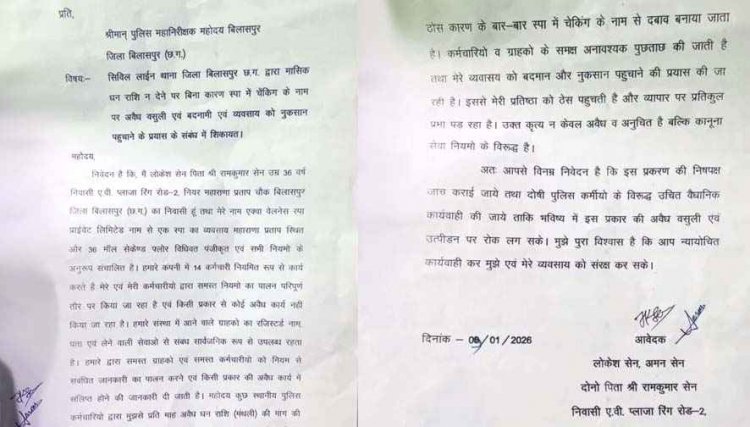 प्रति,
श्रीमान् पुलिस महानिरीक्षक महोदय बिलासपुर
जिला बिलासपुर (छ.ग.)
विषयः– सिविल लाईन थाना जिला बिलासपुर छ.ग. द्वारा मासिक
धन राशि न देने पर बिना कारण स्पा में चेकिंग के नाम
पर अवैध वसुली एवं बदनामी एवं व्यवसाय को नुकसान
पहुचाने के प्रयास के संबंध में शिकायत।
महोदय,
निवेदन है कि, मैं लोकेश सेन पिता श्री रामकुमार सेन उम्र 36 वर्ष
निवासी ए.वी. प्लाजा रिंग रोड–2, नियर महाराणा प्रताप चौक बिलासपुर
जिला बिलासपुर (छ.ग.) का निवासी हूं तथा मेरे नाम एक्वा वेलनेस स्पा
प्राईवेट लिमिटेड नाम से एक स्पा का व्यवसाय महाराणा प्रताप स्थित
और 36 मॉल सेकेण्ड फ्लोर विधिवत पंजीकृत एवं सभी नियमो के
अनुरूप संचालित है। हमारे कंपनी में 14 कर्मचारी नियमित रूप से कार्य
करते है मेरे एवं मेरी कर्मचारीयो द्वारा समस्त नियमो का पालन परिपुर्ण
तौर पर किया जा रहा है एवं किसी प्रकार से कोई अवैध कार्य नही
किया जा रहा है। हमारे संस्था में आने वाले ग्राहको का रजिस्टर्ड नाम,
पता एवं लेने वाली सेवाओ से संबध सार्वजनिक रूप से उपलब्ध रहता
है। हमारे द्वारा समस्त ग्राहको एवं समस्त कर्मचारीयो को नियम से
संबंधित जानकारी का पालन करने एवं किसी प्रकार की अवैध कार्य में
संलिप्त होने की जानकारी दी जाती है। महोदय कुछ स्थानीय पुलिस
कर्मचारियो द्वारा मुझसे प्रति माह अवैध धन राशि (मंथली) की मांग की
ठोस कारण के बार–बार स्पा में चेकिंग के नाम से दबाव बनाया जाता
है। कर्मचारियो व ग्राहको के समक्ष अनावश्यक पुछताछ की जाती है
तथा मेरे व्यवासय को बदमान और नुकसान पहुचाने की प्रयास की जा
रही है। इससे मेरी प्रतिष्ठा को ठेस पहुचती है और व्यापार पर प्रतिकुल
प्रभा पड़ रहा है। उक्त कृत्य न केवल अवैध व अनुचित है बल्कि कानूना
सेवा नियमो के विरूद्ध है।
अतः आपसे विनम्र निवेदन है कि इस प्रकरण की निषपक्ष
जाच कराई जाये तथा दोषी पुलिस कर्मीयो के विरूद्ध उचित वैधानिक
कार्यवाही की जाये ताकि भविष्य में इस प्रकार की अवैध वसुली एवं
उत्पीडन पर रोक लग सके। मुझे पुरा विश्वास है कि आप न्यायोचित
कार्यवाही कर मुझे एवं मेरे व्यवसाय को संरक्ष कर सके।
दिनांक – 09/01/2026
आवेदक
लोकेश सेन, अमन सेन
दोनो पिता श्री रामकुमार सेन
निवासी ए.वी. प्लाजा रिंग रोड–2,